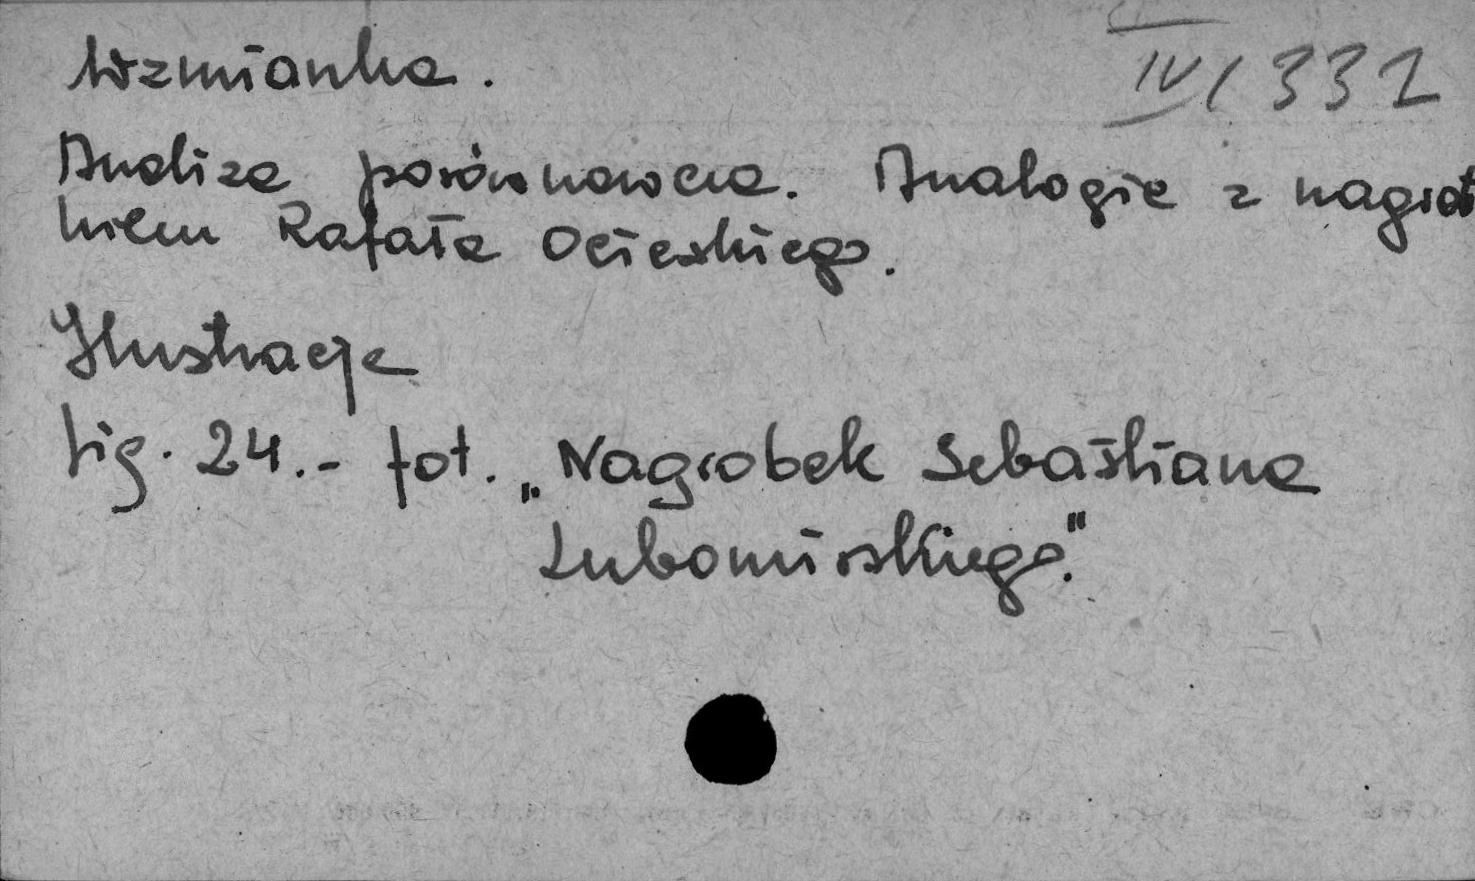 IV/332
Wzmianka.
Analiza porównawcza. Analogie z nagrob
kiem Rafała Ocieskiego.
Ilustracje
fig. 24.- fot. „Nagrobek Sebastiana
Lubomirskiego."